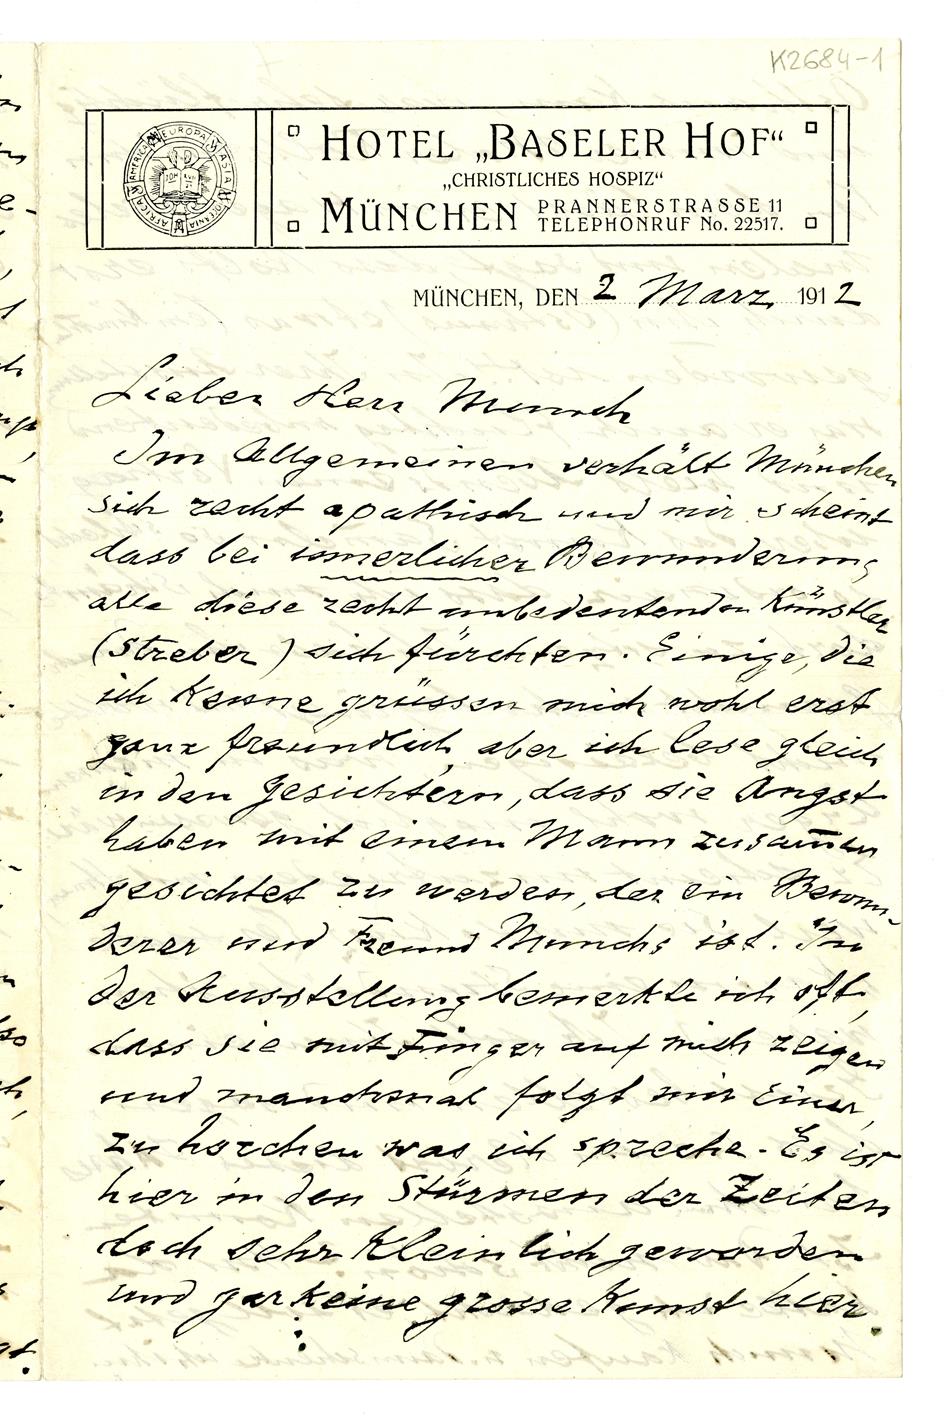 K2684-1
HOTEL „BASELER HOF“
„CHRISTLICHES HOSPIZ“
MÜNCHEN PRANNERSTRASSE 11
TELEPHONRUF No. 22517.
EUROPA ASIA OCEANIA AFRICA AMERICA
MÜNCHEN, DEN 2 März 1912
Lieber Herr Munch
Im Allgemeinen verhält München
sich recht apathisch und mir scheint
dass bei innerlicher Bewunderung
alle diese recht unbedeutenden Künstler
(Streber) sich fürchten. Einige, die
ich kenne grüssen mich wohl erst
ganz freundlich, aber ich lese gleich
in den Gesichtern, dass sie Angst
haben mit einem Mann zusammen
gesichtet zu werden, der ein Bewun-
derer und Freund Munchs ist. In
der Ausstellung bemerkte ich oft,
dass sie mit Finger auf mich zeigen
und manchmal folgt mir Einer,
zu horchen was ich spreche. Es ist
hier in den Stürmen der Zeiten
doch sehr kleinlich geworden
und gar keine grosse Kunst hier.